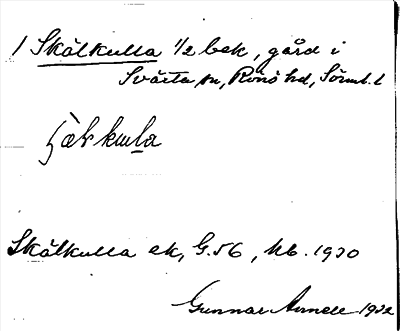 1 Skälkulla 1/2 bek, gård i
Svärta sn, Rönö hd, Sörml. l
Skälkulla ek, G.56, Kb. 1930
Gunnar Arnell 1932